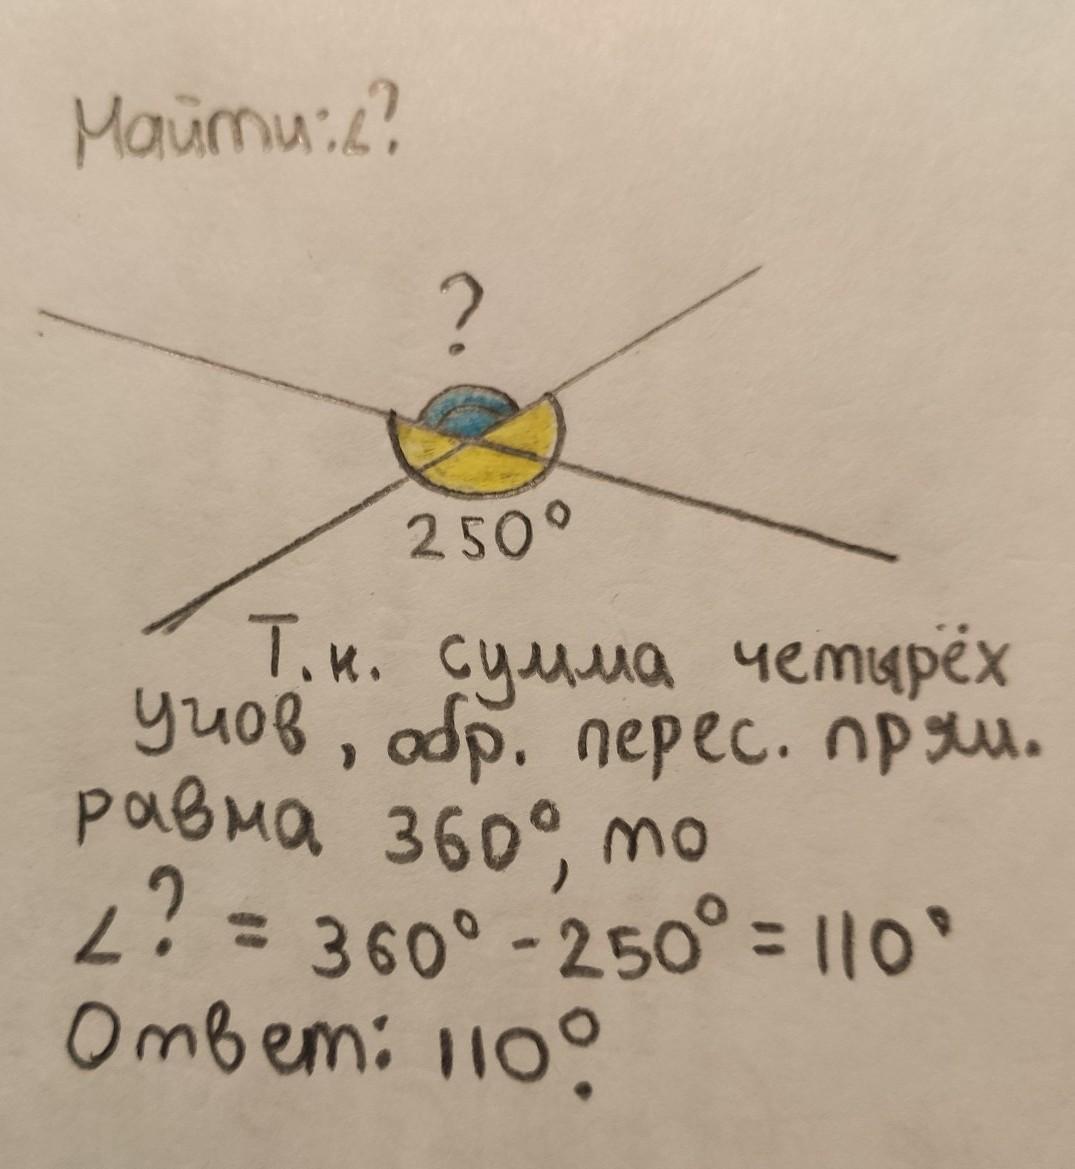 Найти: ∠?
?
250°
Т.к. сумма четырёх
углов, обр. перес. прям.
равна 360°, то
∠? = 360° - 250° = 110°
Ответ: 110°.